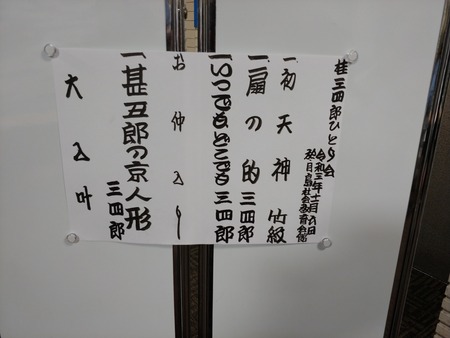 桂三四郎ひとり会
令和三年十二月八日
於月島社会教育会館
一初天神 竹紋
一扇の的 三四郎
一いつでもどこでも 三四郎
お仲入り
一甚五郎の京人形
三四郎
大入叶